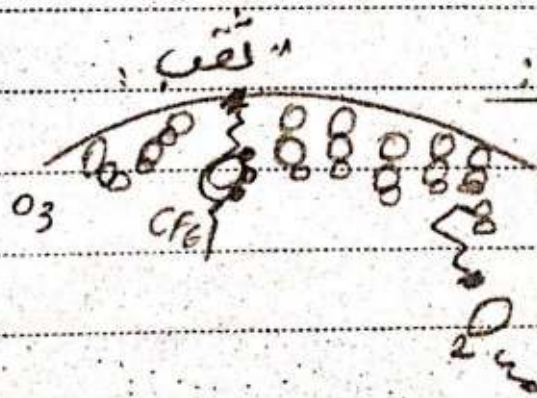 ثقب
O3
CFG